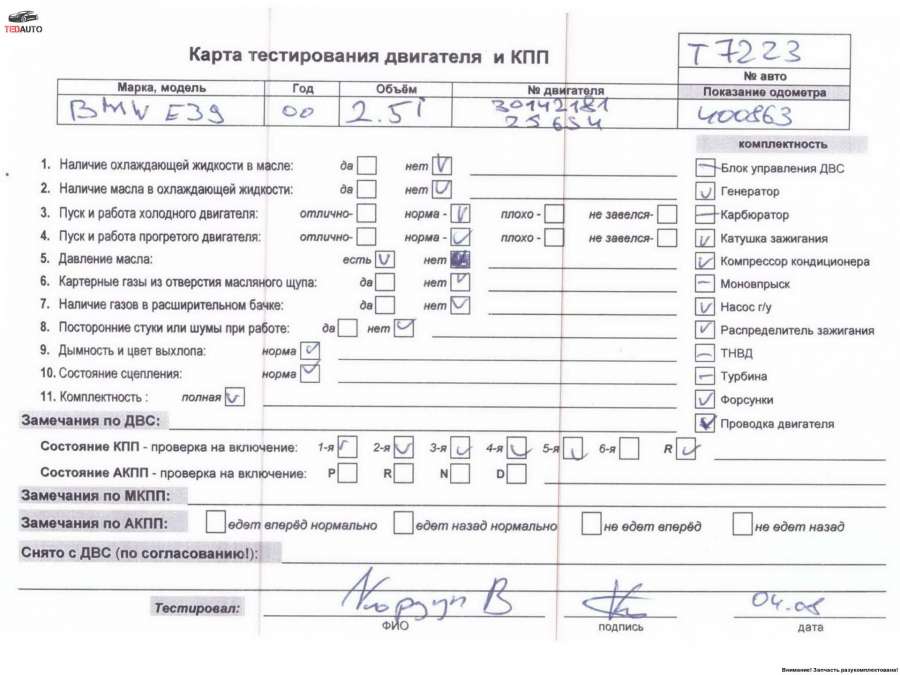 TEDAUTO
Карта тестирования двигателя и КПП
T 7223
№ авто
Марка, модель Год Объём № двигателя Показание одометра
BMW E39 00 2.5i 30142181 400863
25 6S4
комплектность
1. Наличие охлаждающей жидкости в масле: да нет Блок управления ДВС
2. Наличие масла в охлаждающей жидкости: да нет Генератор
3. Пуск и работа холодного двигателя: отлично- норма - плохо - не завелся- Карбюратор
4. Пуск и работа прогретого двигателя: отлично- норма - плохо - не завелся- Катушка зажигания
5. Давление масла: есть нет Компрессор кондиционера
6. Картерные газы из отверстия масляного щупа: да нет Моновпрыск
7. Наличие газов в расширительном бачке: да нет Насос г/у
8. Посторонние стуки или шумы при работе: да нет Распределитель зажигания
9. Дымность и цвет выхлопа: норма ТНВД
10. Состояние сцепления: норма Турбина
11. Комплектность : полная Форсунки
Замечания по ДВС: Проводка двигателя
Состояние КПП - проверка на включение: 1-я 2-я 3-я 4-я 5-я 6-я R
Состояние АКПП - проверка на включение: P R N D
Замечания по МКПП:
Замечания по АКПП: едет вперёд нормально едет назад нормально не едет вперёд не едет назад
Снято с ДВС (по согласованию!):
Тестировал: В 04.08
ФИО подпись дата
Внимание! Запчасть разукомплектована!